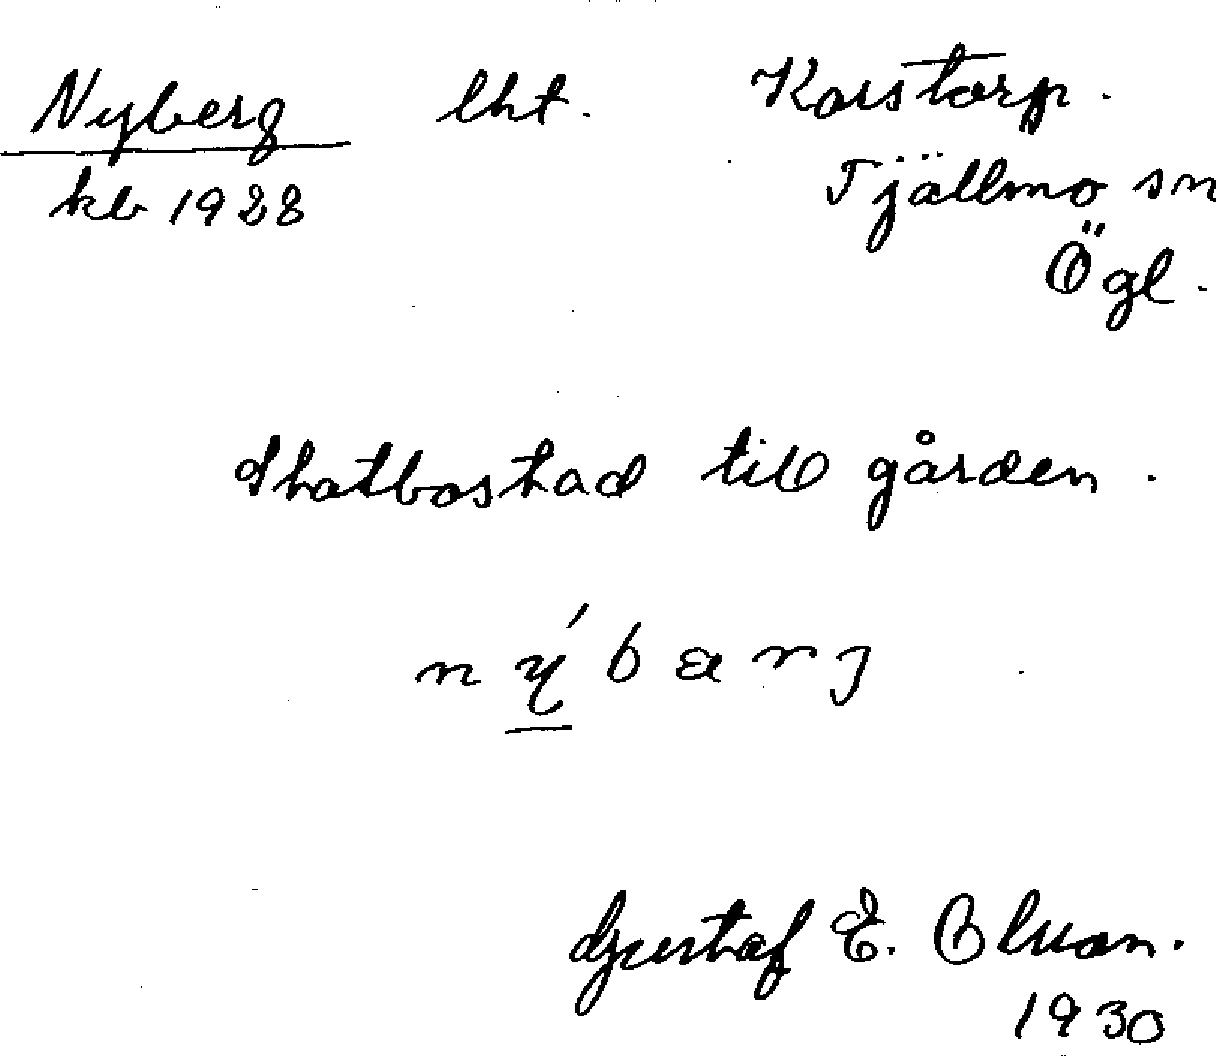 Nyberg lht. Karstorp.
kb 1928 Tjällmo sn
Ögl.
Statbostad till gården.
ny´bærj
Gustaf E.
1930